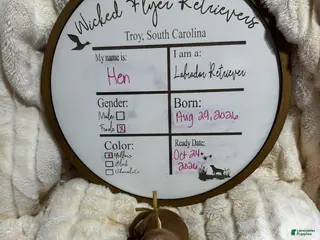 Wicked Flyer Retrievers
Troy, South Carolina
My name is:
Hen
I am a:
Labrador Retriever
Gender:
Male
Female
Born:
Aug 29, 2026
Color:
Yellow
Black
Chocolate
Ready Date:
Oct 24
2026
Lancaster
Puppies